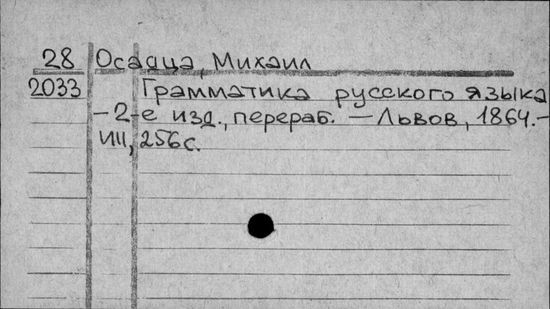 28 Осадца, Михаил
2033 Грамматика русского языка
-2-е изд., перераб. - Львов, 1864.-
ИII, 256 с.